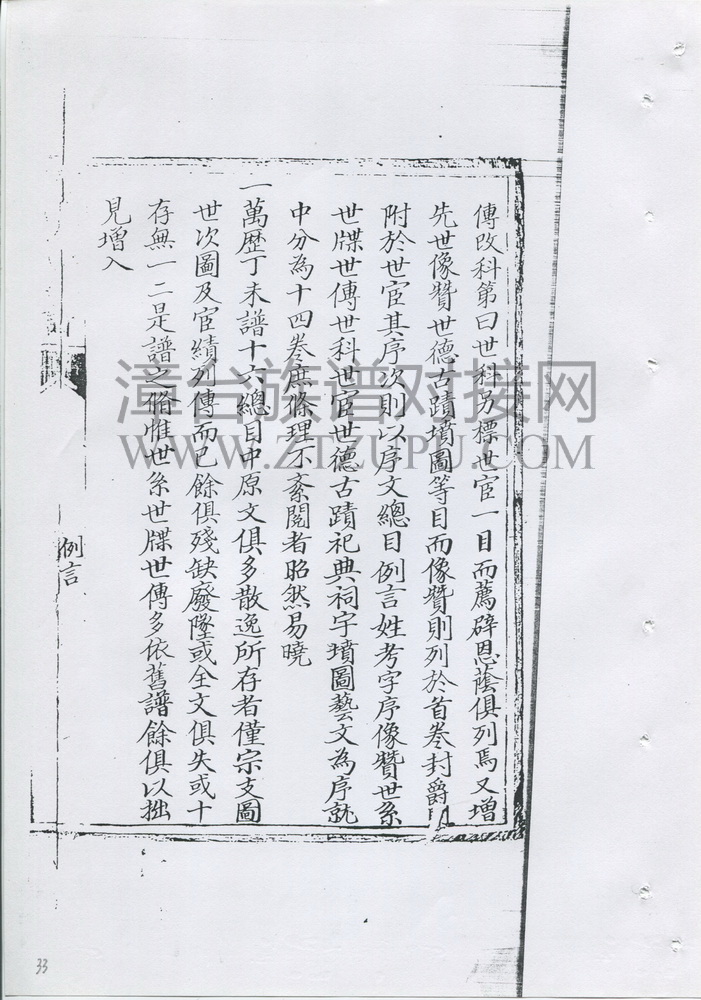 傳改科第曰世科另標世宦一目而薦辟恩蔭俱列焉又增
先世像贊世德古蹟墳圖等目而像贊則列於首卷封爵
附於世宦其序次則以序文總目例言姓考字序像贊世系
世牒世傳世科世宦世德古蹟祀典祠宇墳圖藝文為序就
中分為十四卷庶條理不紊閱者昭然易曉
一萬歷丁未譜十六總目中原文俱多散逸所存者僅宗支圖
世次圖及宦績列傳而已餘俱殘缺廢墜或全文俱失或十
存無一二是譜之脩惟世系世牒世傳多依舊譜餘俱以拙
見增入
例言
漳台族谱对接网
WWW.ZTZUPU.COM
33